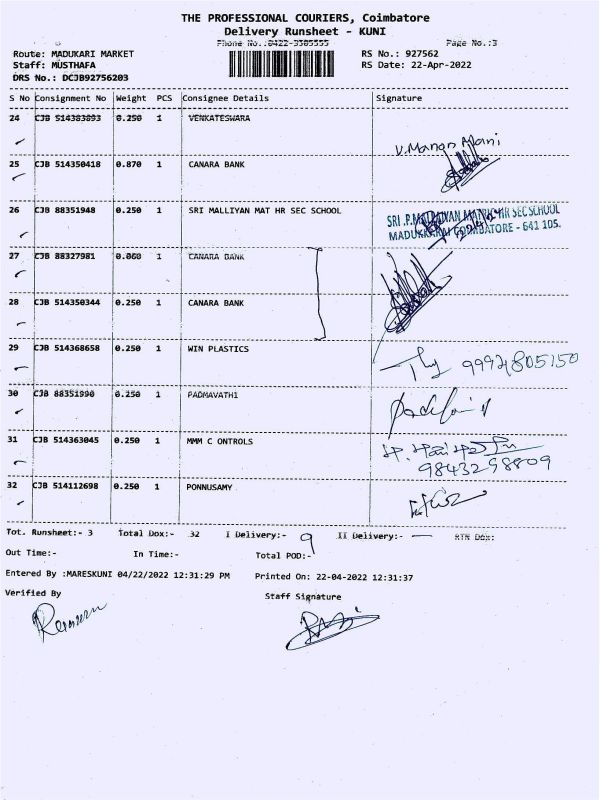 THE PROFESSIONAL COURIERS, Coimbatore
Delivery Runsheet - KUNI
Phone No.:0422-3305555 Page No.:3
Route: MADUKARI MARKET RS No.: 927562
Staff: MUSTHAFA RS Date: 22-Apr-2022
DRS No.: DCJB92756203
S No Consignment No Weight PCS Consignee Details Signature
24 CJB 514383893 0.250 1 VENKATESWARA
V. Manon Mani
25 CJB 514350418 0.870 1 CANARA BANK
26 CJB 88351948 0.250 1 SRI MALLIYAN MAT HR SEC SCHOOL
MADUKKARAI COIMBATORE - 641 105.
27 CJB 88327981 0.060 1 CANARA BANK
28 CJB 514350344 0.250 1 CANARA BANK
29 CJB 514368658 0.250 1 WIN PLASTICS
30 CJB 88351990 0.250 1 PADMAVATHI
31 CJB 514363045 0.250 1 MMM C ONTROLS
9843298809
32 CJB 514112698 0.250 1 PONNUSAMY
Tot. Runsheet:- 3 Total Dox:- 32 I Delivery:- 9 II Delivery:- — RTN Dox:
Out Time:- In Time:- Total POD:-
Entered By :MARESKUNI 04/22/2022 12:31:29 PM Printed On: 22-04-2022 12:31:37
Verified By Staff Signature